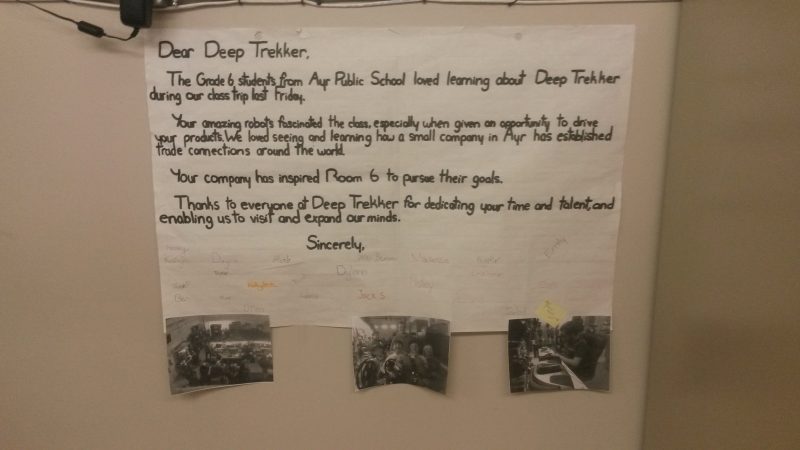 Dear Deep Trekker,
The Grade 6 students from Ayr Public School loved learning about Deep Trekker
during our class trip last Friday.
Your amazing robots fascinated the class, especially when given an opportunity to drive
your products. We loved seeing and learning how a small company in Ayr has established
trade connections around the world.
Your company has inspired Room 6 to pursue their goals.
Thanks to everyone at Deep Trekker for dedicating your time and talent, and
enabling us to visit and expand our minds.
Sincerely,
Emily
Dylan
Jack S
Ben